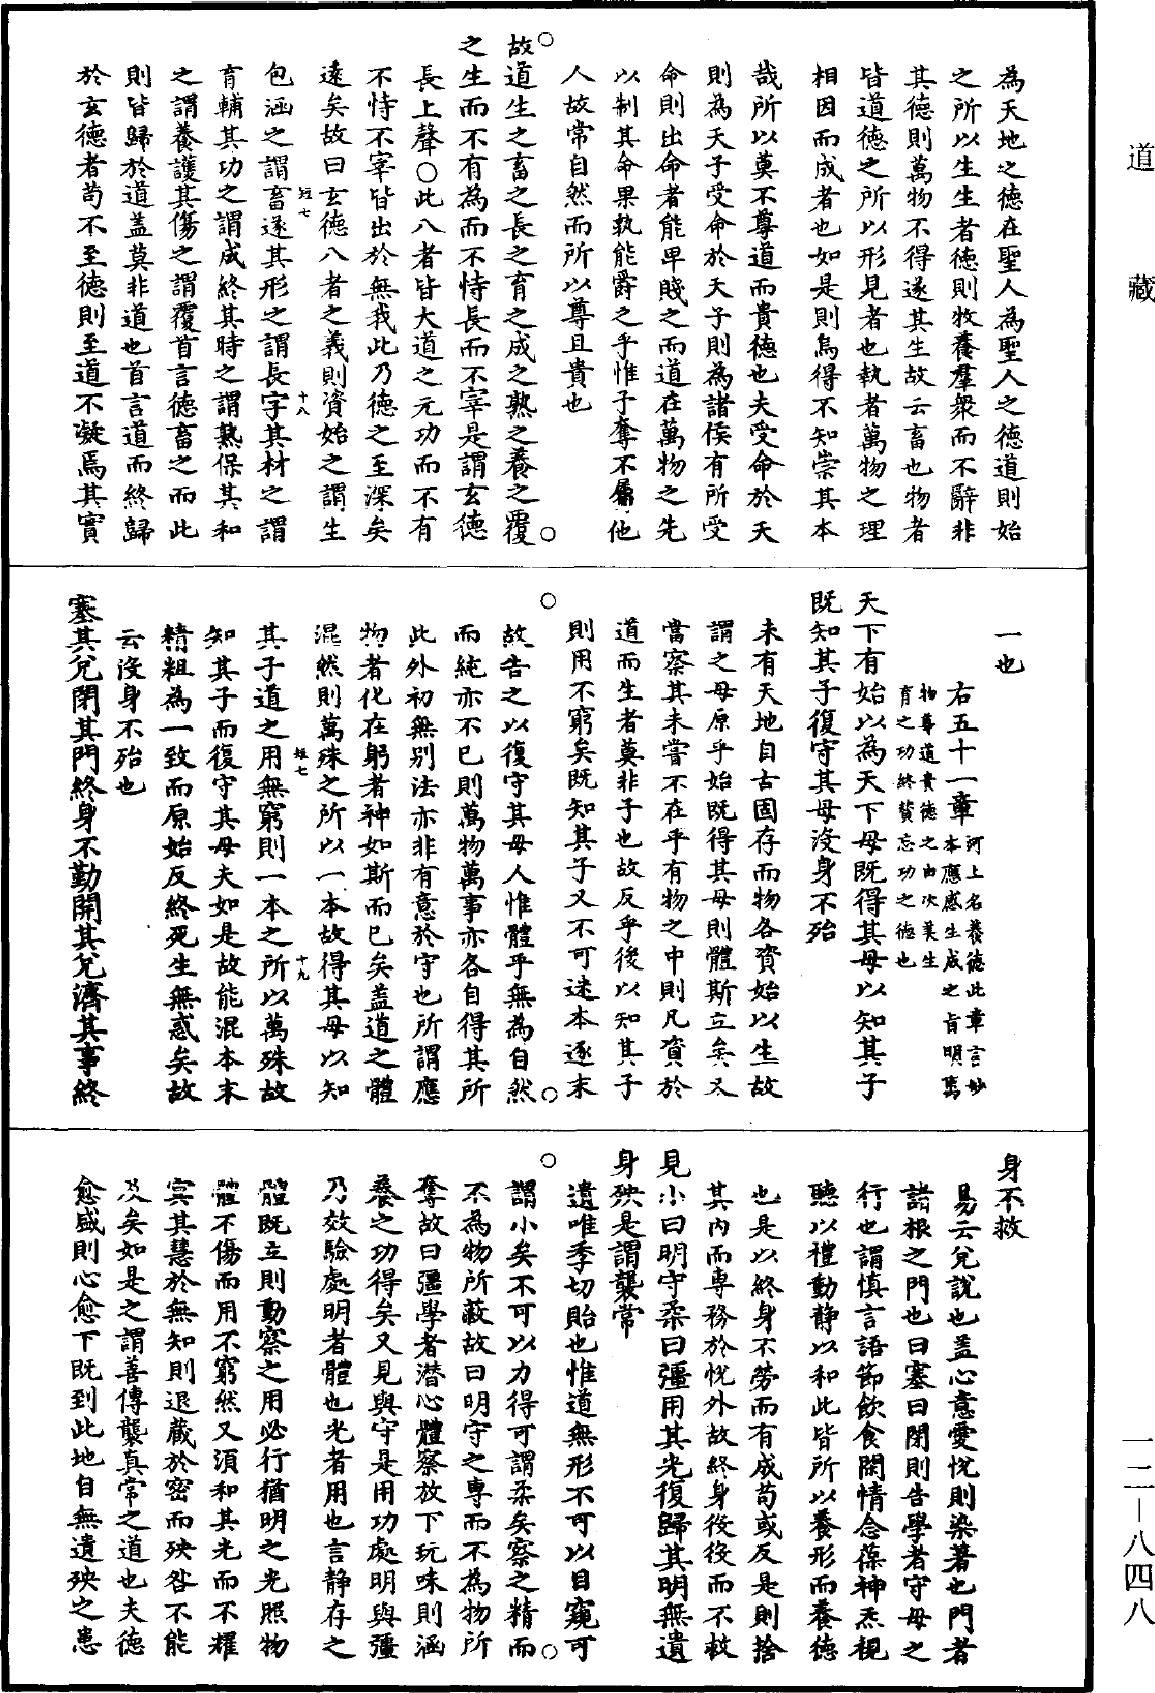 道藏
一二—八四八
為天地之德在聖人為聖人之德道則始
之所以生生者德則牧養羣衆而不辭非
其德則萬物不得遂其生故云畜也物者
皆道德之所以形見者也執者萬物之理
相因而成者也如是則烏得不知崇其本
哉所以莫不尊道而貴德也夫受命於天
則為天子受命於天子則為諸侯有所受
命則出命者能卑賤之而道在萬物之先
以制其命果執能爵之乎惟予奪不屬他
人故常自然而所以尊且貴也
故道生之畜之長之育之成之熟之養之覆
之生而不有為而不恃長而不宰是謂玄德
長上聲○此八者皆大道之元功而不有
不恃不宰皆出於無我此乃德之至深矣
遠矣故曰玄德八者之義則資始之謂生
包涵之謂畜遂其形之謂長字其材之謂
育輔其功之謂成終其時之謂熟保其和
之謂養護其傷之謂覆首言德畜之而此
則皆歸於道盖莫非道也首言道而終歸
於玄德者苟不至德則至道不凝焉其實
一也
右五十一章
河上名養德此章言妙
本應感生成之旨明萬
物尊道貴德之由次美生
育之功終贊忘功之德也
天下有始以為天下母既得其母以知其子
既知其子復守其母沒身不殆
未有天地自古固存而物各資始以生故
謂之母原乎始既得其母則體斯立矣又
當察其未嘗不在乎有物之中則凡資於
道而生者莫非子也故反乎後以知其子
則用不窮矣既知其子又不可迷本逐末
故告之以復守其母人惟體乎無為自然
而純亦不已則萬物萬事亦各自得其所
此外初無別法亦非有意於守也所謂應
物者化在躬者神如斯而已矣盖道之體
混然則萬殊之所以一本故得其母以知
其子道之用無窮則一本之所以萬殊故
知其子而復守其母夫如是故能混本末
精粗為一致而原始反終死生無惑矣故
云沒身不殆也
塞其兌閉其門終身不勤開其兌濟其事終
身不救
易云兌說也盖心意愛悅則染著也門者
諸根之門也曰塞曰閉則告學者守母之
行也謂慎言語節飲食閑情念葆神炁視
聽以禮動靜以和此皆所以養形而養德
也是以終身不勞而有成苟或反是則捨
其內而專務於悅外故終身役役而不救
見小曰明守柔曰彊用其光復歸其明無遺
身殃是謂襲常
遺唯季切貽也惟道無形不可以目窺可
謂小矣不可以力得可謂柔矣察之精而
不為物所蔽故曰明守之專而不為物所
奪故曰彊學者潛心體察放下玩味則涵
養之功得矣又見與守是用功處明與彊
乃效驗處明者體也光者用也言靜存之
體既立則動察之用必行猶明之光照物
體不傷而用不窮然又須和其光而不耀
㝠其慧於無知則退藏於密而殃咎不能
及矣如是之謂善傳襲真常之道也夫德
愈盛則心愈下既到此地自無遺殃之患